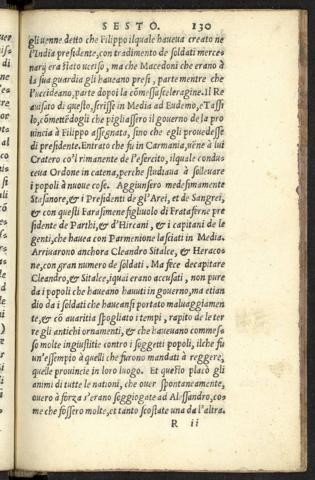 SESTO. 130
gli uenne detto che Filippo ilquale haueua creato ne
l'India presidente, con tradimento de soldati merce-
narij era stato ucciso, ma che Macedoni che erano à
la sua guardia gli haueano presi, parte mentre che
l'uccideano, parte dopo la cõmessa sceleragine. Il Re
auisato di questo, scrisse in Media ad Eudemo, e Tassi
lo, cõmettẽdogli che pigliassero il gouerno de la pro
uincia à Filippo assegnata, sino che egli prouedesse
di presidente. Entrato che fu in Carmania, uẽne à lui
Cratero co'l rimanente de l'esercito, ilquale condu-
ceua Ordone in catena, perche studiaua à solleuare
i popoli à nuoue cose. Aggiunsero medesimamente
Stasanore, & i Presidenti de gl'Arei, et de Sangrei,
& con questi Farasimene figliuolo di Frataferne pre
sidente de Parthi, & d'Hircani, & i capitani de le
genti, che hauea con Parmenione lasciati in Media.
Arriuarono anchora Cleandro Sitalce, & Heraco-
ne, con gran numero de soldati. Ma fece decapitare
Cleandro, & Sitalce, iquai erano accusati, non pure
da i popoli che haueano hauuti in gouerno, ma etian
dio da i soldati che haueansi portato maluaggiamen-
te, & cõ auaritia spogliato i tempi, rapito de le ter
re gli antichi ornamenti, & che haueuano commes-
so molte ingiustitie contro i soggetti popoli, ilche fu
un'essempio à quelli che furono mandati à reggere,
quelle prouincie in loro luogo. Et questo placò gli
animi di tutte le nationi, che ouer spontaneamente,
ouero à forza s'erano soggiogate ad Alessandro, co-
me che fossero molte, et tanto scostate una da l'altra.
R ii